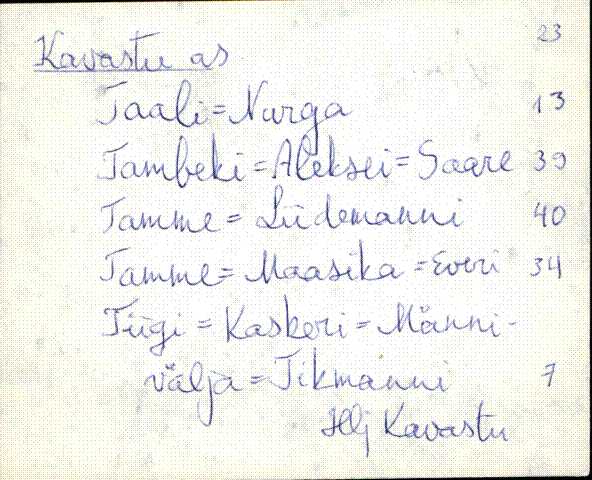 23
Kavastu as
Taali = Nurga 13
Tambeki = Aleksei = Saare 39
Tamme = Liidemanni 40
Tamme = Maasika = Everi 34
Tiigi = Kaskeri = Männi-
välja = Tikmanni 7
Hlj Kavastu